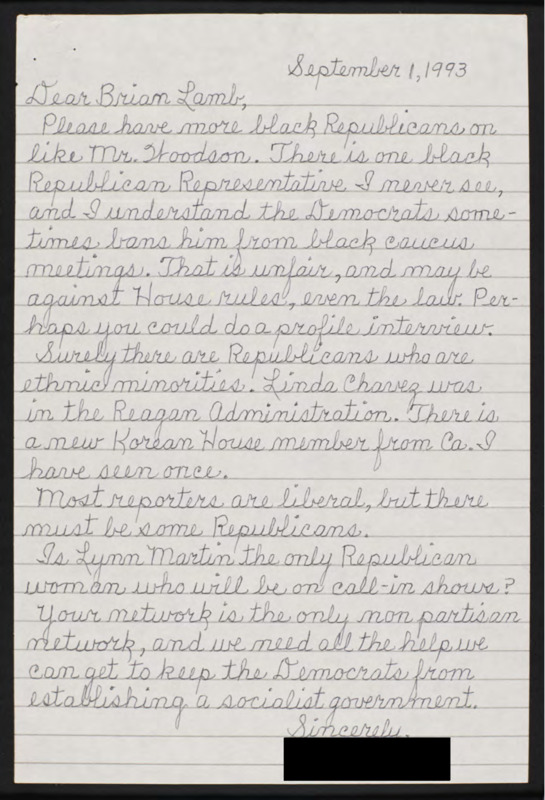 September 1, 1993
Dear Brian Lamb,
Please have more black Republicans on
like Mr. Woodson. There is one black
Republican Representative I never see,
and I understand the Democrats some-
times bans him from black caucus
meetings. That is unfair, and may be
against House rules, even the law. Per-
haps you could do a profile interview.
Surely there are Republicans who are
ethnic minorities. Linda Chavez was
in the Reagan Administration. There is
a new Korean House member from Ca. I
have seen once.
Most reporters are liberal, but there
must be some Republicans.
Is Lynn Martin the only Republican
woman who will be on call-in shows?
Your network is the only non partisan
network, and we need all the help we
can get to keep the Democrats from
establishing a socialist government.
Sincerely,